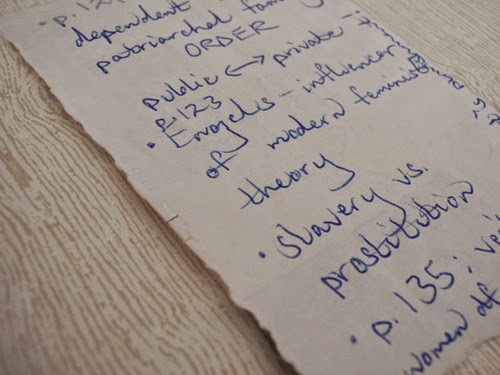 • p. 12
dependent
patriarchal family
ORDER
public <-> private -
p. 123
• Engels - influencer
of modern feminist
theory
• slavery vs.
prostitution
• p. 135:
women of